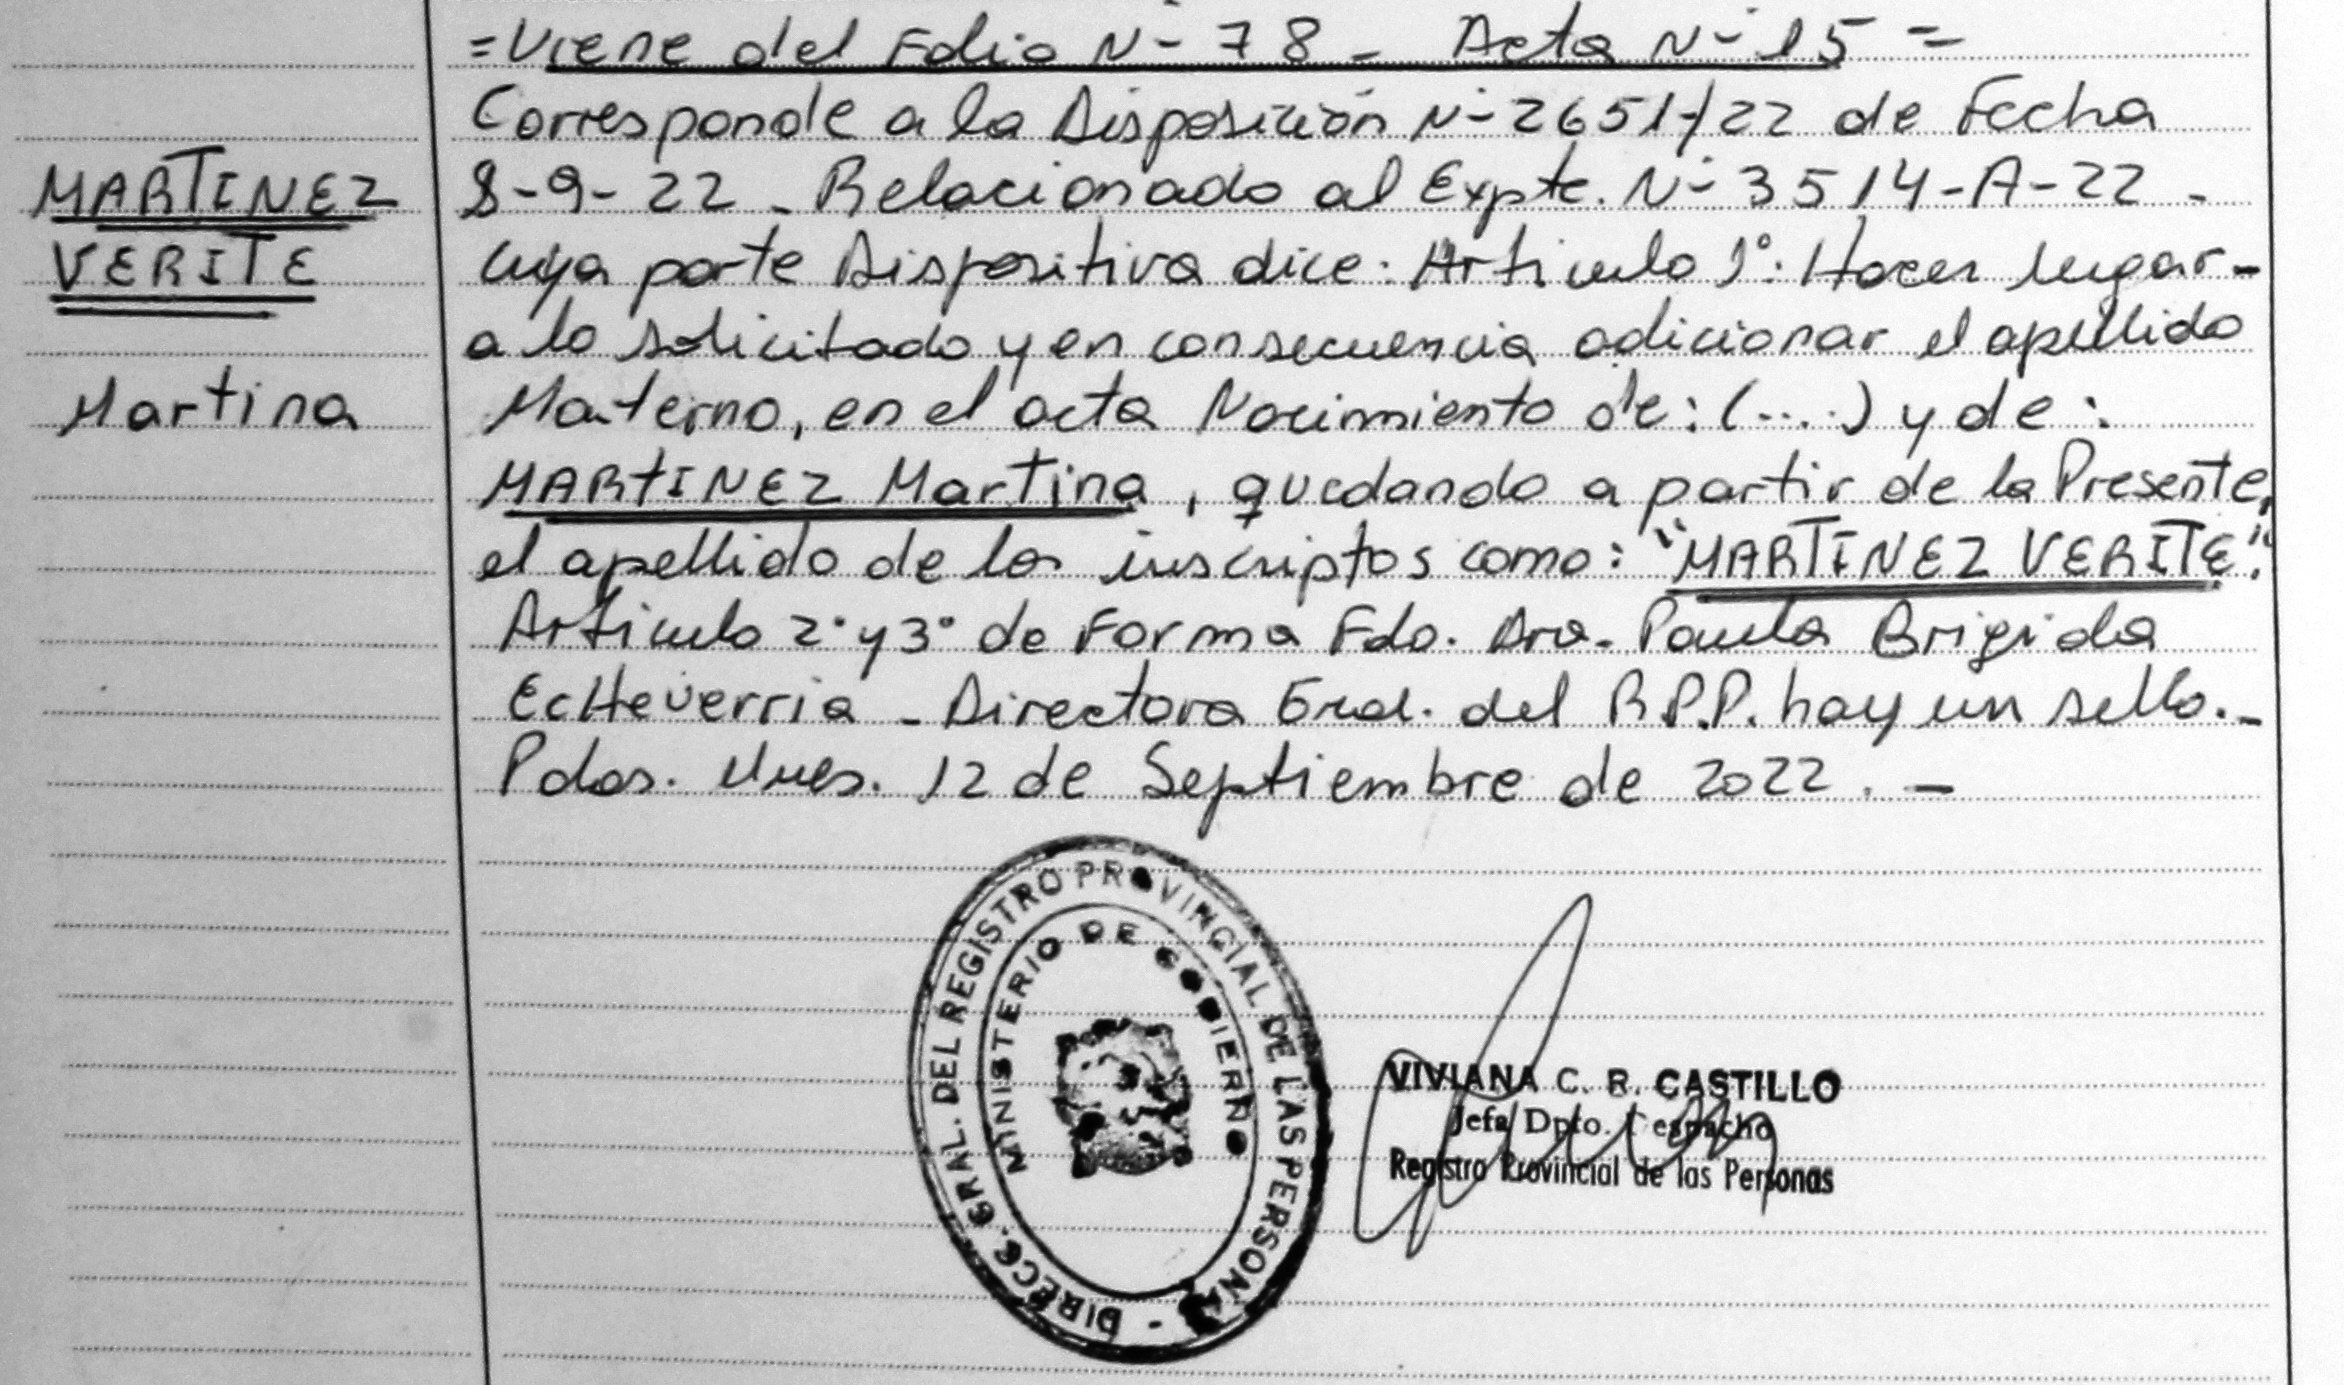 =Viene del Folio N- 78 - Acta N- 15 =
Corresponde a la Disposición N- 2651/22 de Fecha
MARTINEZ
8-9-22 - Relacionado al Expte. N- 3514-A-22 -
VERITE
cuya parte Dispositiva dice: Artículo 1°: Hacer lugar-
a lo solicitado y en consecuencia adicionar el apellido
Martina
Materno, en el acta Nacimiento de: (....) y de:
MARTINEZ Martina, quedando a partir de la Presente,
el apellido de los inscriptos como: "MARTINEZ VERITE".
Artículo 2° y 3° de Forma Fdo. Dra. Paula Brigida
EcHeverria - Directora Gral. del R.P.P. hay un sello.-
Pdas. Mnes. 12 de Septiembre de 2022. -
DIRECC. GRAL. DEL REGISTRO PROVINCIAL DE LAS PERSONAS -
MINISTERIO DE GOBIERNO
VIVIANA C. R. CASTILLO
Jefa Dpto. Despacho
Registro Provincial de las Personas